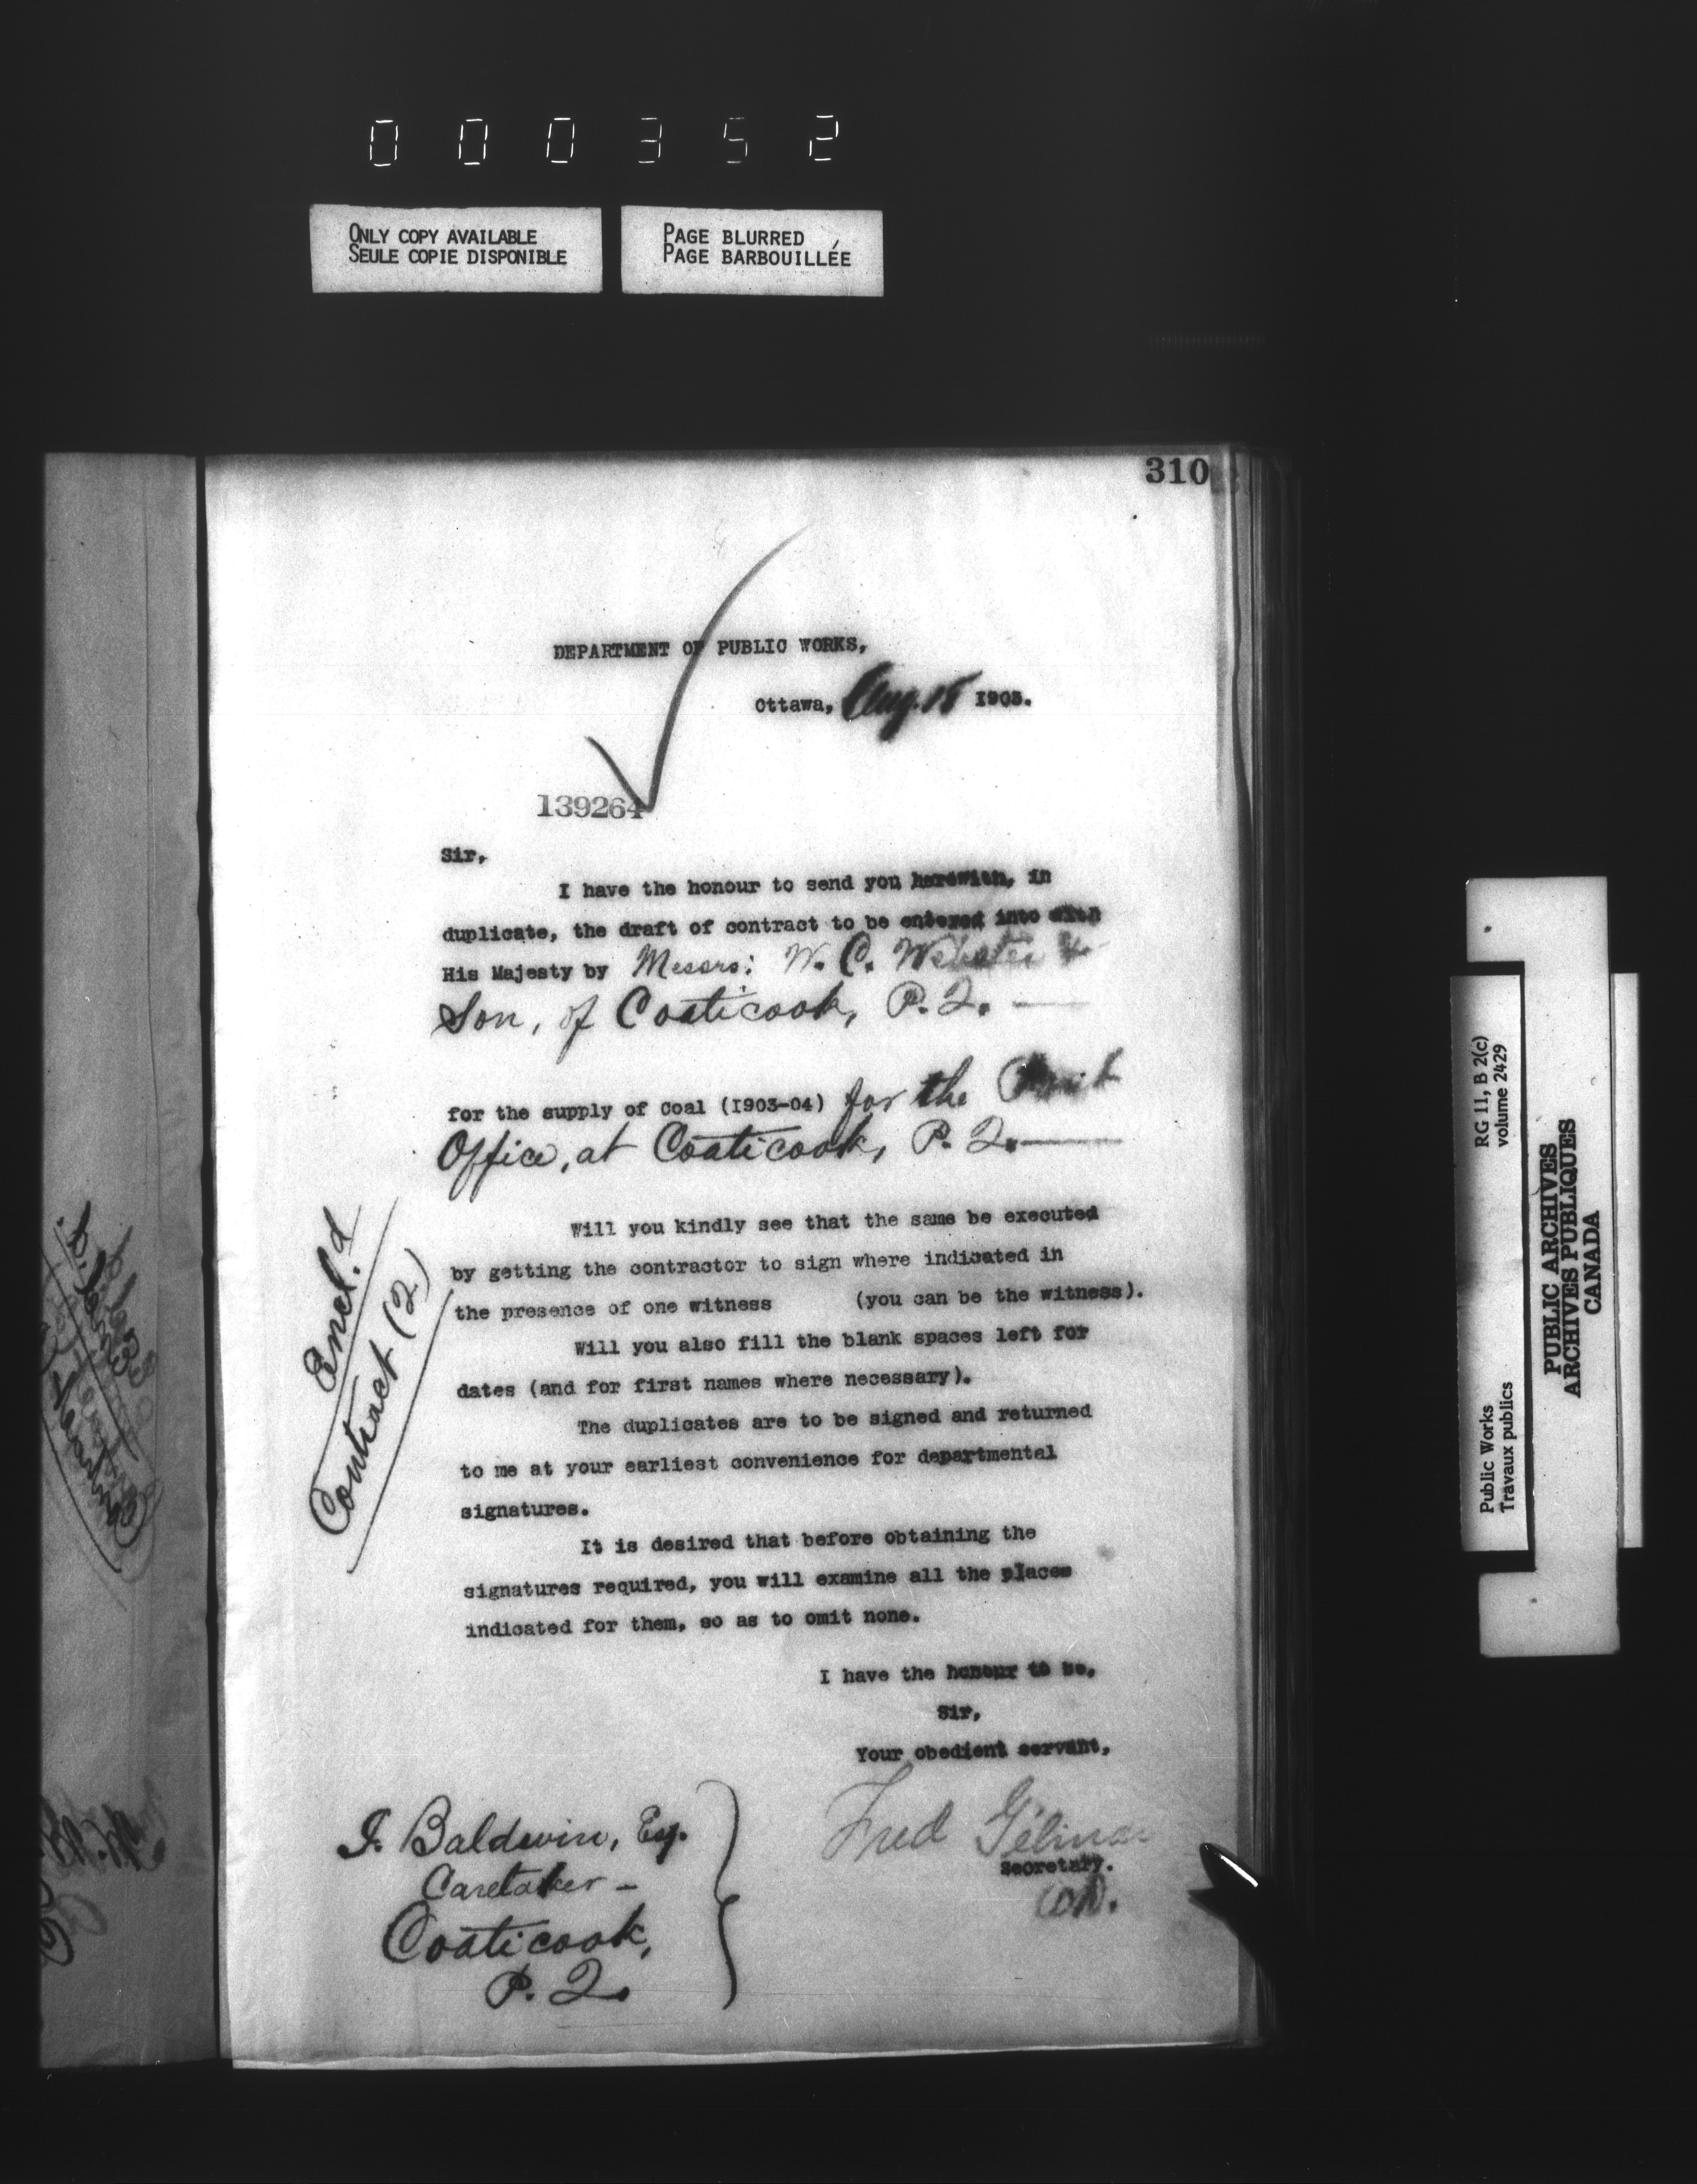 000352
ONLY COPY AVAILABLE
SEULE COPIE DISPONIBLE
PAGE BLURRED
PAGE BARBOUILLÉE
310
DEPARTMENT OF PUBLIC WORKS,
Ottawa, Aug. 1903.
139264
Sir,
I have the honour to send you herewith, in
duplicate, the draft of contract to be entered into with
His Majesty by Messrs: W. C. Webster &
Son, of Coaticook, P. Q. —
for the supply of Coal (1903-04) for the
Office, at Coaticook, P. Q. —
Encl.d
Contract (2)
Will you kindly see that the same be executed
by getting the contractor to sign where indicated in
the presence of one witness (you can be the witness).
Will you also fill the blank spaces left for
dates (and for first names where necessary).
The duplicates are to be signed and returned
to me at your earliest convenience for departmental
signatures.
It is desired that before obtaining the
signatures required, you will examine all the places
indicated for them, so as to omit none.
I have the honour to be,
Sir,
Your obedient servant,
Fred Gélinas
Secretary.
J. Baldwin, Esq.
Caretaker –
Coaticook,
P. Q.
Public Works
Travaux publics
RG 11, B 2(c)
volume 2429
PUBLIC ARCHIVES
ARCHIVES PUBLIQUES
CANADA